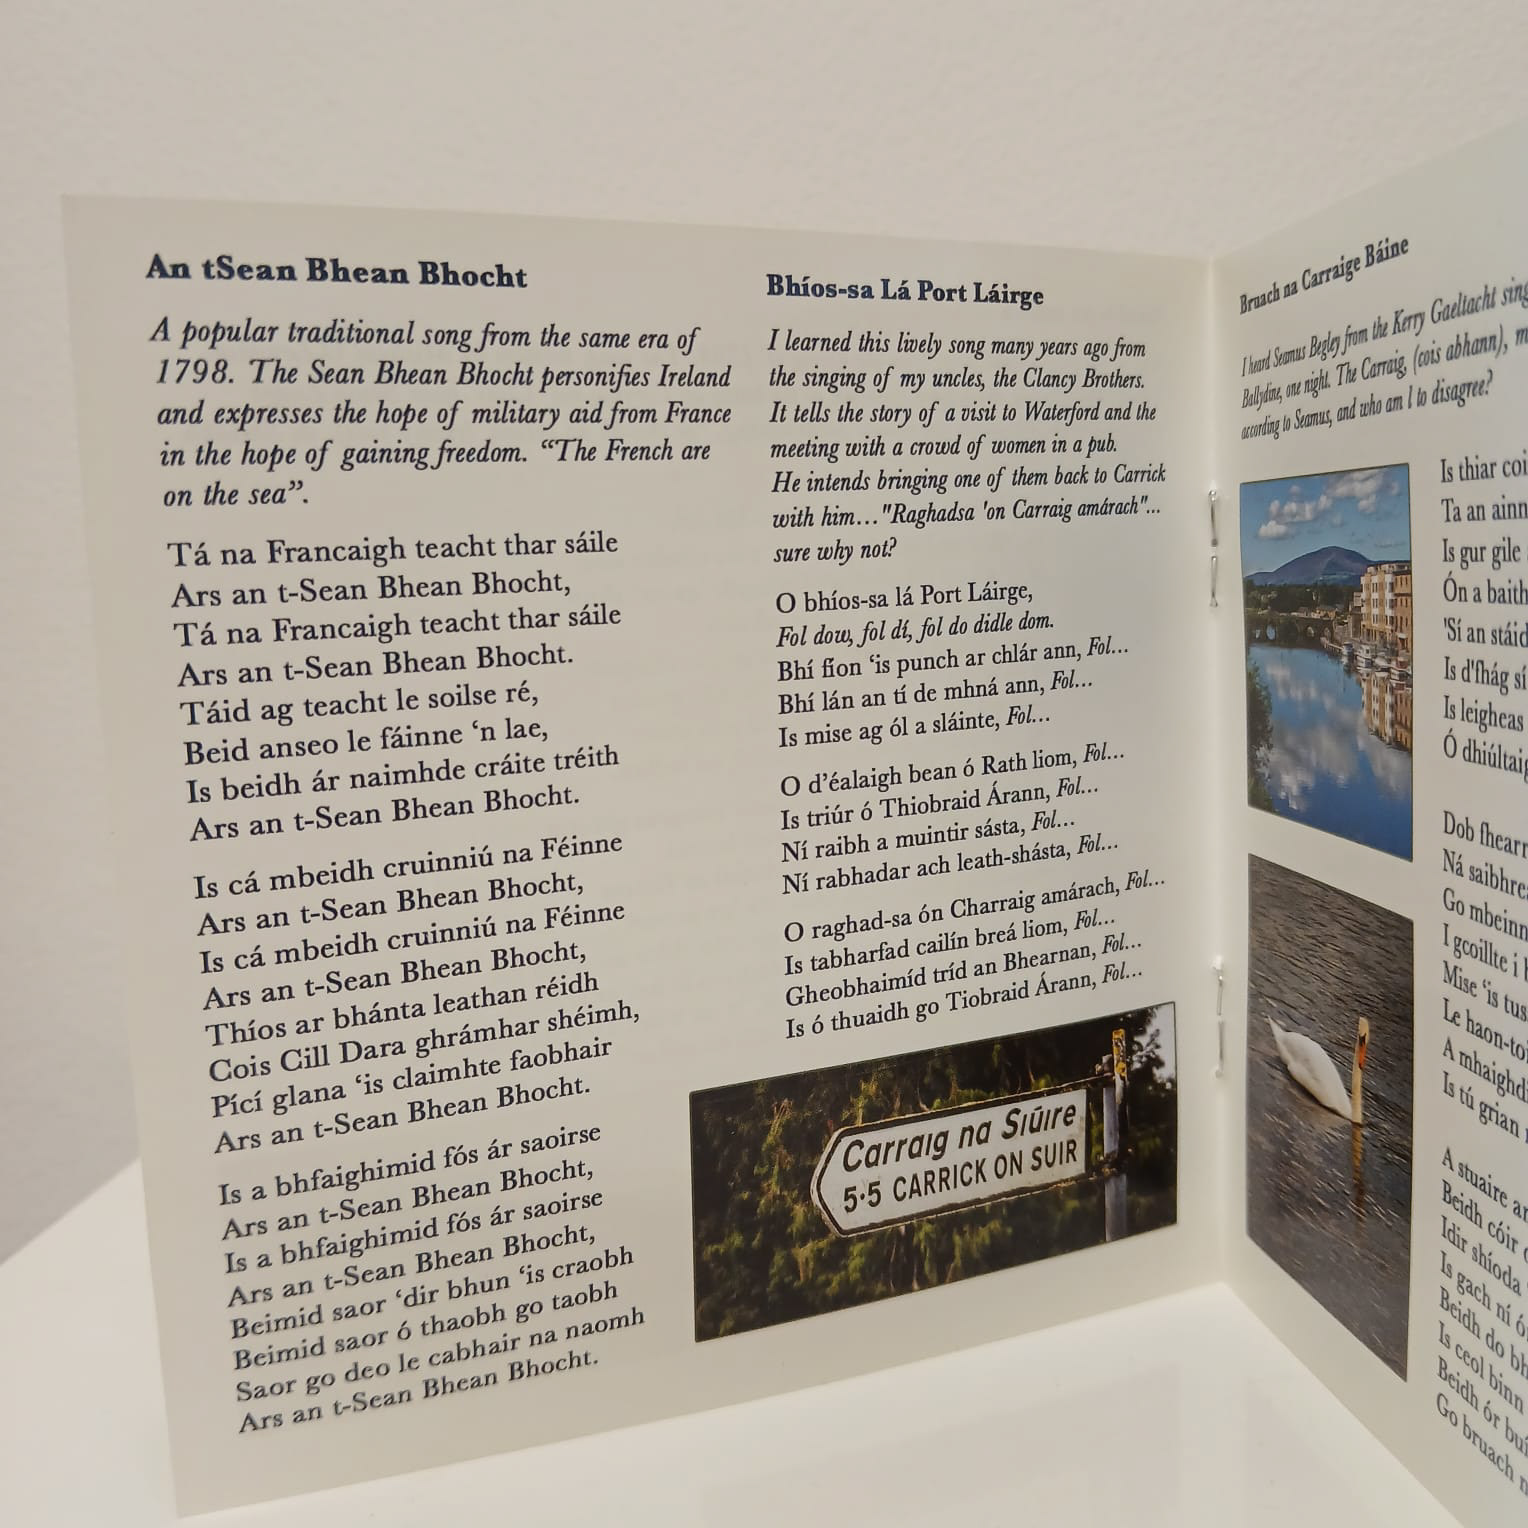 An tSean Bhean Bhocht
A popular traditional song from the same era of
1798. The Sean Bhean Bhocht personifies Ireland
and expresses the hope of military aid from France
in the hope of gaining freedom. “The French are
on the sea”.
Tá na Francaigh teacht thar sáile
Ars an t-Sean Bhean Bhocht,
Tá na Francaigh teacht thar sáile
Ars an t-Sean Bhean Bhocht.
Táid ag teacht le soilse ré,
Beid anseo le fáinne ‘n lae,
Is beidh ár naimhde cráite tréith
Ars an t-Sean Bhean Bhocht.
Is cá mbeidh cruinniú na Féinne
Ars an t-Sean Bhean Bhocht,
Is cá mbeidh cruinniú na Féinne
Ars an t-Sean Bhean Bhocht,
Thíos ar bhánta leathan réidh
Cois Cill Dara ghrámhar shéimh,
Pící glana ‘is claimhte faobhair
Ars an t-Sean Bhean Bhocht.
Is a bhfaighimid fós ár saoirse
Ars an t-Sean Bhean Bhocht,
Is a bhfaighimid fós ár saoirse
Ars an t-Sean Bhean Bhocht,
Beimid saor ‘dir bhun ‘is craobh
Beimid saor ó thaobh go taobh
Saor go deo le cabhair na naomh
Ars an t-Sean Bhean Bhocht.
Bhíos-sa Lá Port Láirge
I learned this lively song many years ago from
the singing of my uncles, the Clancy Brothers.
It tells the story of a visit to Waterford and the
meeting with a crowd of women in a pub.
He intends bringing one of them back to Carrick
with him..."Raghadsa 'on Carraig amárach"...
sure why not?
O bhíos-sa lá Port Láirge,
Fol dow, fol dí, fol do didle dom.
Bhí fíon ‘is punch ar chlár ann, Fol...
Bhí lán an tí de mhná ann, Fol...
Is mise ag ól a sláinte, Fol...
O d’éalaigh bean ó Rath liom, Fol...
Is triúr ó Thiobraid Árann, Fol...
Ní raibh a muintir sásta, Fol...
Ní rabhadar ach leath-shásta, Fol...
O raghad-sa ón Charraig amárach, Fol...
Is tabharfad cailín breá liom, Fol...
Gheobhaimíd tríd an Bhearnan, Fol...
Is ó thuaidh go Tiobraid Árann, Fol...
Carraig na Siūire
5·5 CARRICK ON SUIR
Bruach na Carraige Báine
I heard Seamus Begley from the Kerry Gaeltacht sing
Ballydine, one night. The Carraig, (cois abhann),
according to Seamus, and who am I to disagree?
Is thiar
Ta an
Is gur gile
Ón a
'Sí an
Is d'fhág sí
Is leigheas
Ó
Dob
Ná
Go
I gcoillte i
Mise ‘is
Le
A
Is tú grian
A stuaire
Beidh cóir
Idir shíoda
Is gach ní
Beidh do
Is ceol binn
Beidh ór
Go bruach